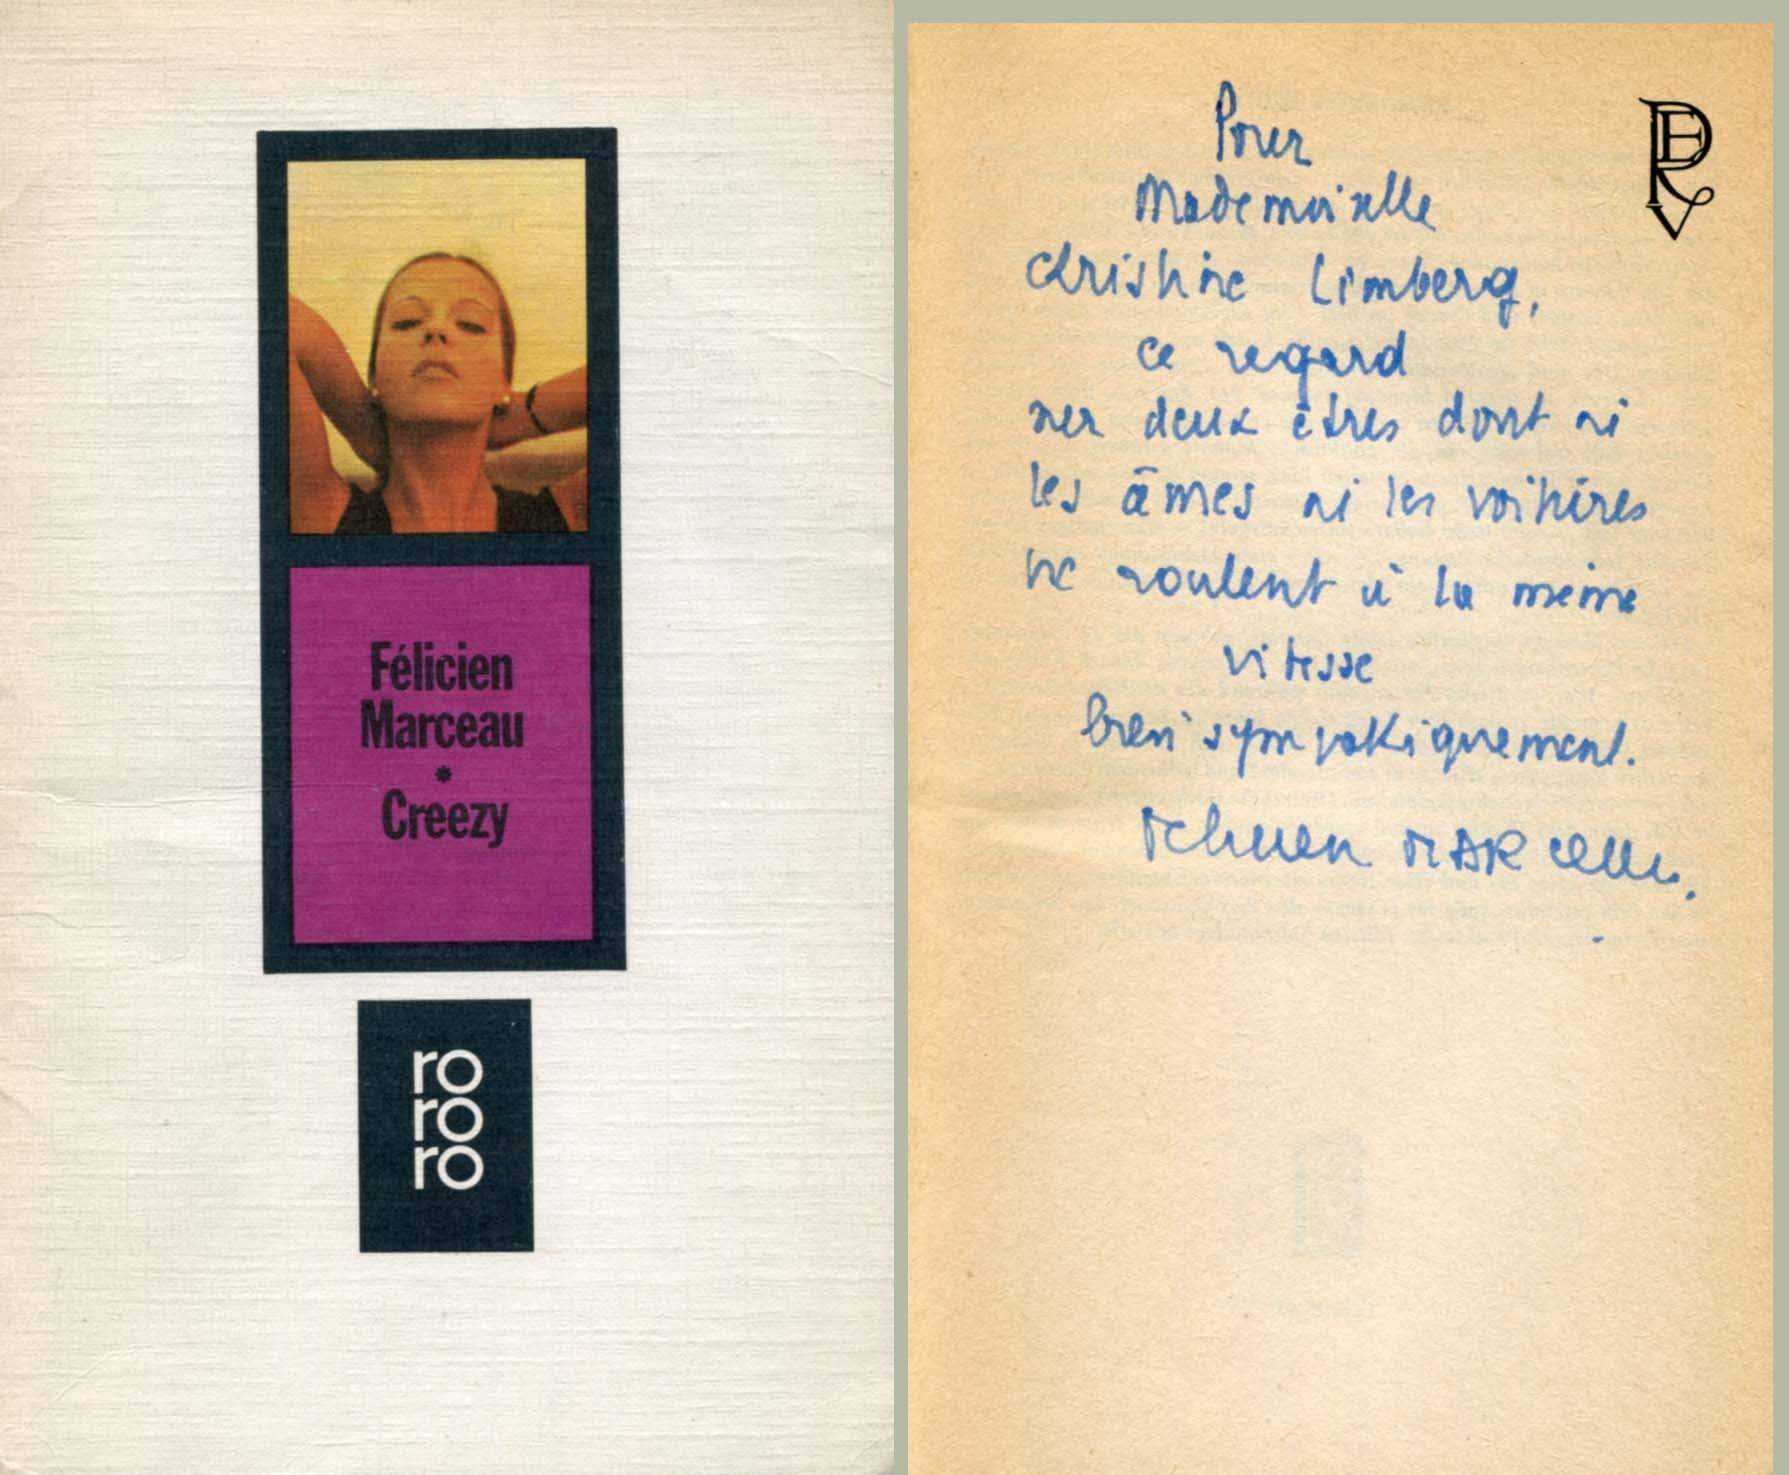 Félicien
Marceau
*
Creezy
ro
ro
ro
Pour
Mademoiselle
Christine Limberg,
ce regard
sur deux êtres dont ni
les âmes ni les voitures
ne roulent à la même
vitesse
bien sympathiquement.
Félicien MARCEAU.